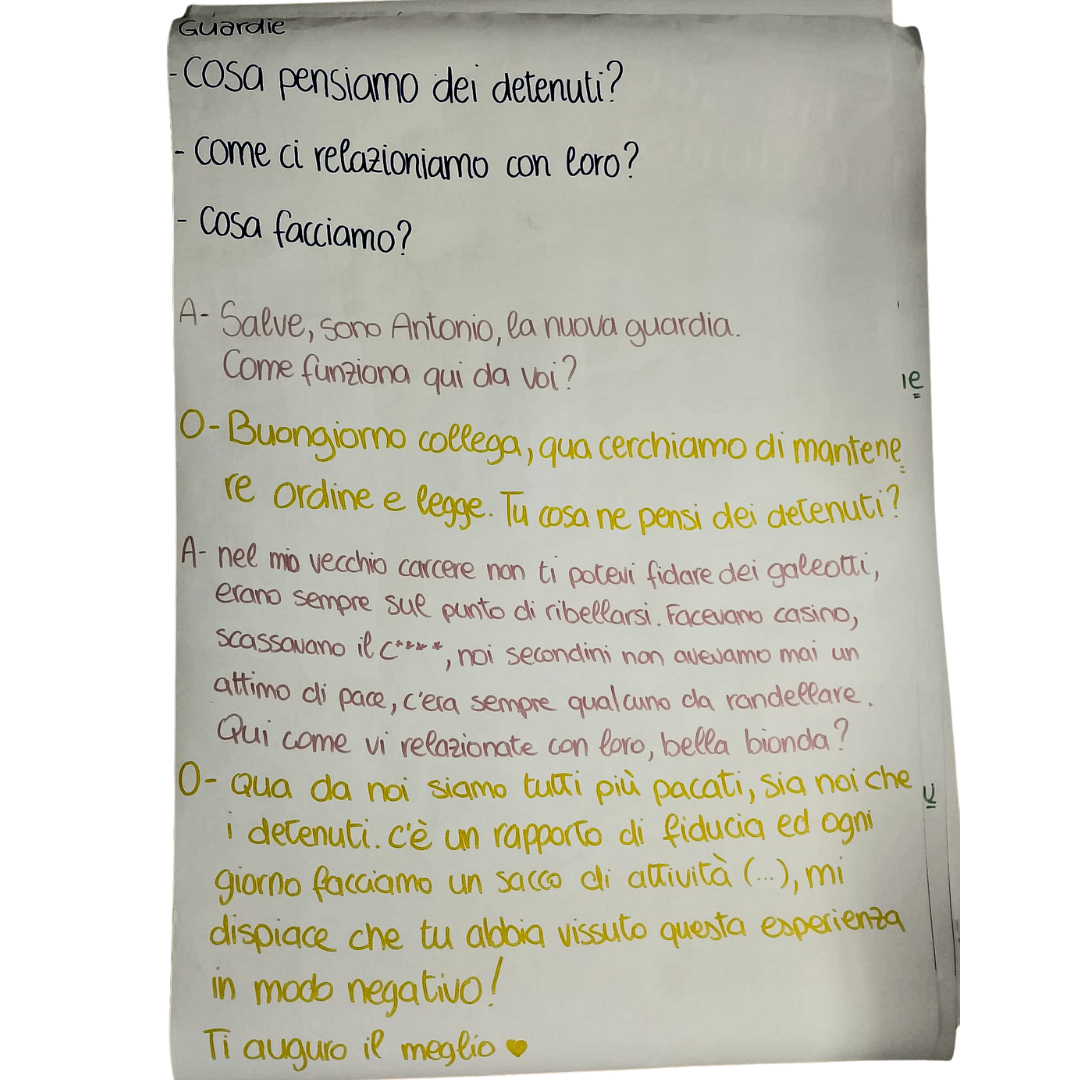 Guardie
- Cosa pensiamo dei detenuti?
- Come ci relazioniamo con loro?
- Cosa facciamo?
A- Salve, sono Antonio, la nuova guardia.
Come funziona qui da voi?
ie
O- Buongiorno collega, qua cerchiamo di mantene
re ordine e legge. Tu cosa ne pensi dei detenuti?
A- nel mio vecchio carcere non ti potevi fidare dei galeotti,
erano sempre sul punto di ribellarsi. Facevano casino,
scassavano il c****, noi secondini non avevamo mai un
attimo di pace, c'era sempre qualcuno da randellare.
Qui come vi relazionate con loro, bella bionda?
O- Qua da noi siamo tutti più pacati, sia noi che
i detenuti. c'è un rapporto di fiducia ed ogni
giorno facciamo un sacco di attività (...), mi
dispiace che tu abbia vissuto questa esperienza
in modo negativo!
Ti auguro il meglio ♥